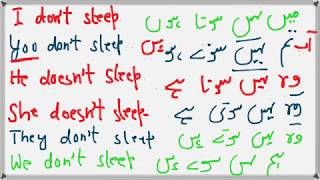 I don't sleep میں نہیں سوتا ہوں
You don't sleep تم نہیں سوتے ہو آپ ہیں
He doesn't sleep وہ نہیں سوتا ہے
She doesn't sleep وہ نہیں سوتی ہے
They don't sleep وہ نہیں سوتے ہیں
We don't sleep ہم نہیں سوتے ہیں